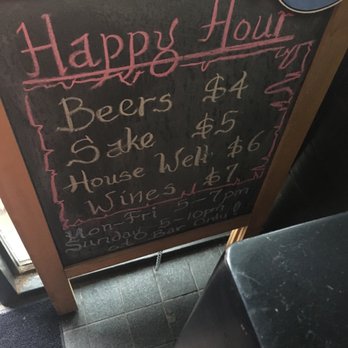 Happy Hour
Beers $4
Sake $5
House Well $6
Wines $7
Mon-Fri 5-7pm
Sunday 5-10pm!
at Bar Only